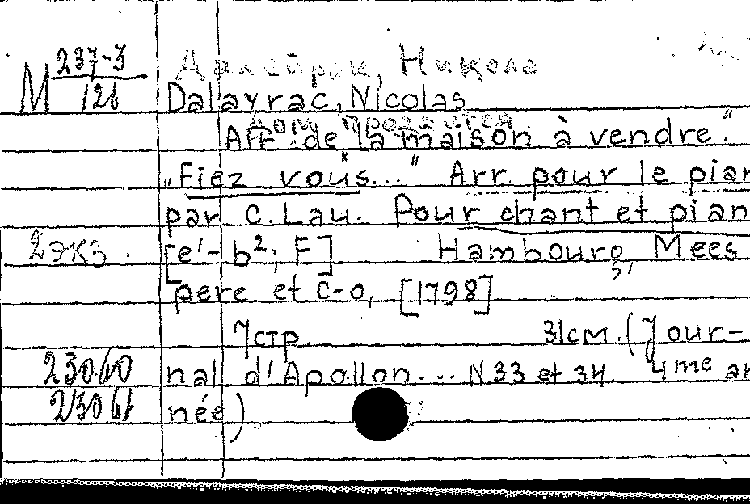 М 237-3/126
Далейрак, Никола
Dalayrac, Nicolas
Дом продается
Air de la maison à vendre."
„Fiez vous..." Arr. pour le pian
par C. Lau. Pour chant et pian
2экз. [e¹-b²; F] Hambourg, Mees
pere et C-o, [1798]
7стр 31см. (Jour-
23060 nal d'Apollon... N33 et 34 4me an
23061 née)